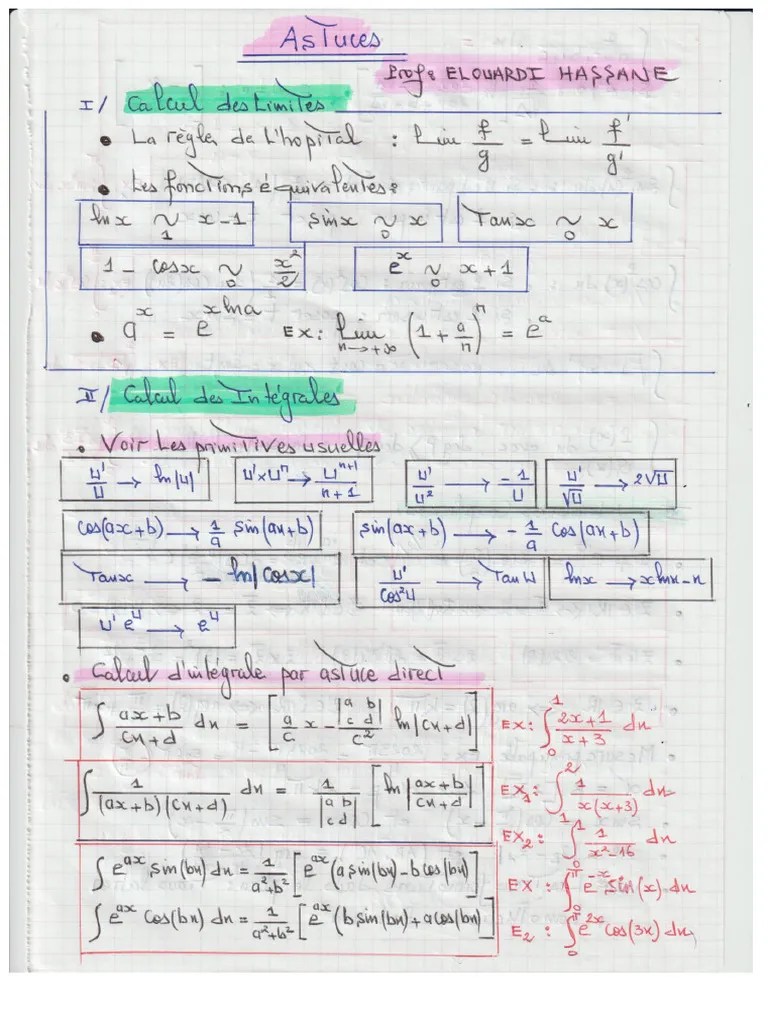 Astuces
Prof: ELOUARDI HASSANE
I/ Calcul des Limites
• La règle de L'hopital : Lim f/g = Lim f'/g'
• Les fonctions équivalentes:
ln x ~₁ x-1    sin x ~₀ x    Tan x ~₀ x
1 - cos x ~₀ x²/2    eˣ ~₀ x+1
• aˣ = e^(x ln a)    EX: Lim n→+∞ (1 + a/n)ⁿ = eᵃ
II/ Calcul des Intégrales
• Voir Les primitives usuelles
u'/u → ln|u|    u'×uⁿ → uⁿ⁺¹/n+1    u'/u² → -1/u    u'/√u → 2√u.
cos(ax+b) → 1/a sin(ax+b)    sin(ax+b) → -1/a cos(ax+b)
Tan x → - ln|cos x|    u'/cos²u → Tan u    ln x → x ln x - x
u' eᵘ → eᵘ
• Calcul d'intégrale par astuce direct
∫ ax+b/cx+d dx = [a/c x - |a b c d|/c² ln|cx+d|]    EX: ∫₀¹ 2x+1/x+3 dx
∫ 1/(ax+b)(cx+d) dx = 1/|a b c d| [ln|ax+b/cx+d|]    EX₁: ∫₁² 1/x(x+3) dx
EX₂: ∫₀¹ 1/x²-16 dx
∫ eᵃˣ sin(bx) dx = 1/a²+b² [eᵃˣ (a sin(bx) - b cos(bx))]    EX: ∫₀^π e⁻ˣ sin(x) dx
∫ eᵃˣ cos(bx) dx = 1/a²+b² [eᵃˣ (b sin(bx) + a cos(bx))]    E₂: ∫₀^π e²ˣ cos(3x) dx